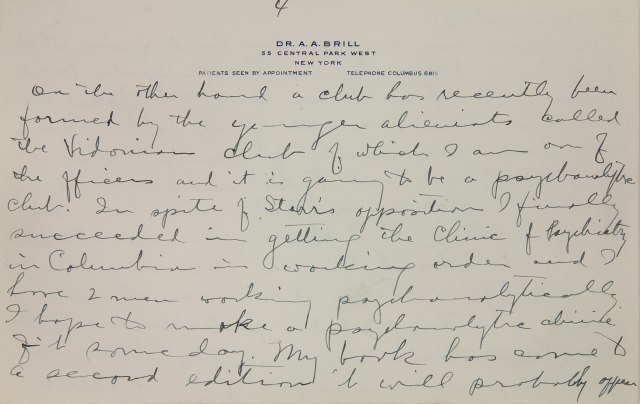 4
DR. A. A. BRILL
55 CENTRAL PARK WEST
NEW YORK
PATIENTS SEEN BY APPOINTMENT TELEPHONE COLUMBUS 6815
On the other hand a club has recently been
formed by the younger alienists called
the Vidonian club of which I am one of
the officers and it is going to be a psychanalytic
club. In spite of Starr's opposition I finally
succeeded in getting the Clinic of Psychiatry
in Columbia in working order and I
have 2 men working psychanalytically
I hope to make a psychanalytic clinic
of it some day. My book has come to
a second edition it will probably appear